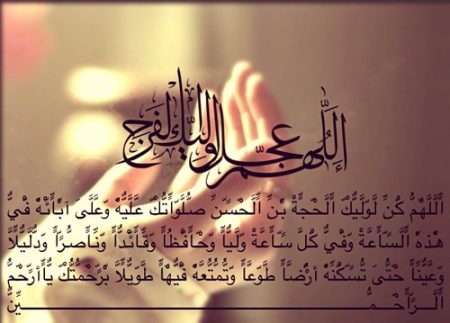 اللهم عجل لوليك الفرج
أللهم كن لوليك الحجة بن الحسن صلواتك عليه وعلى آبائه في
هذه الساعة وفي كل ساعة وليا وحافظا وقائدا وناصرا ودليلا
وعينا حتى تسكنه أرضا طوعا وتمتعه فيها طويلا برحمتك ياأرحم
الراحمين